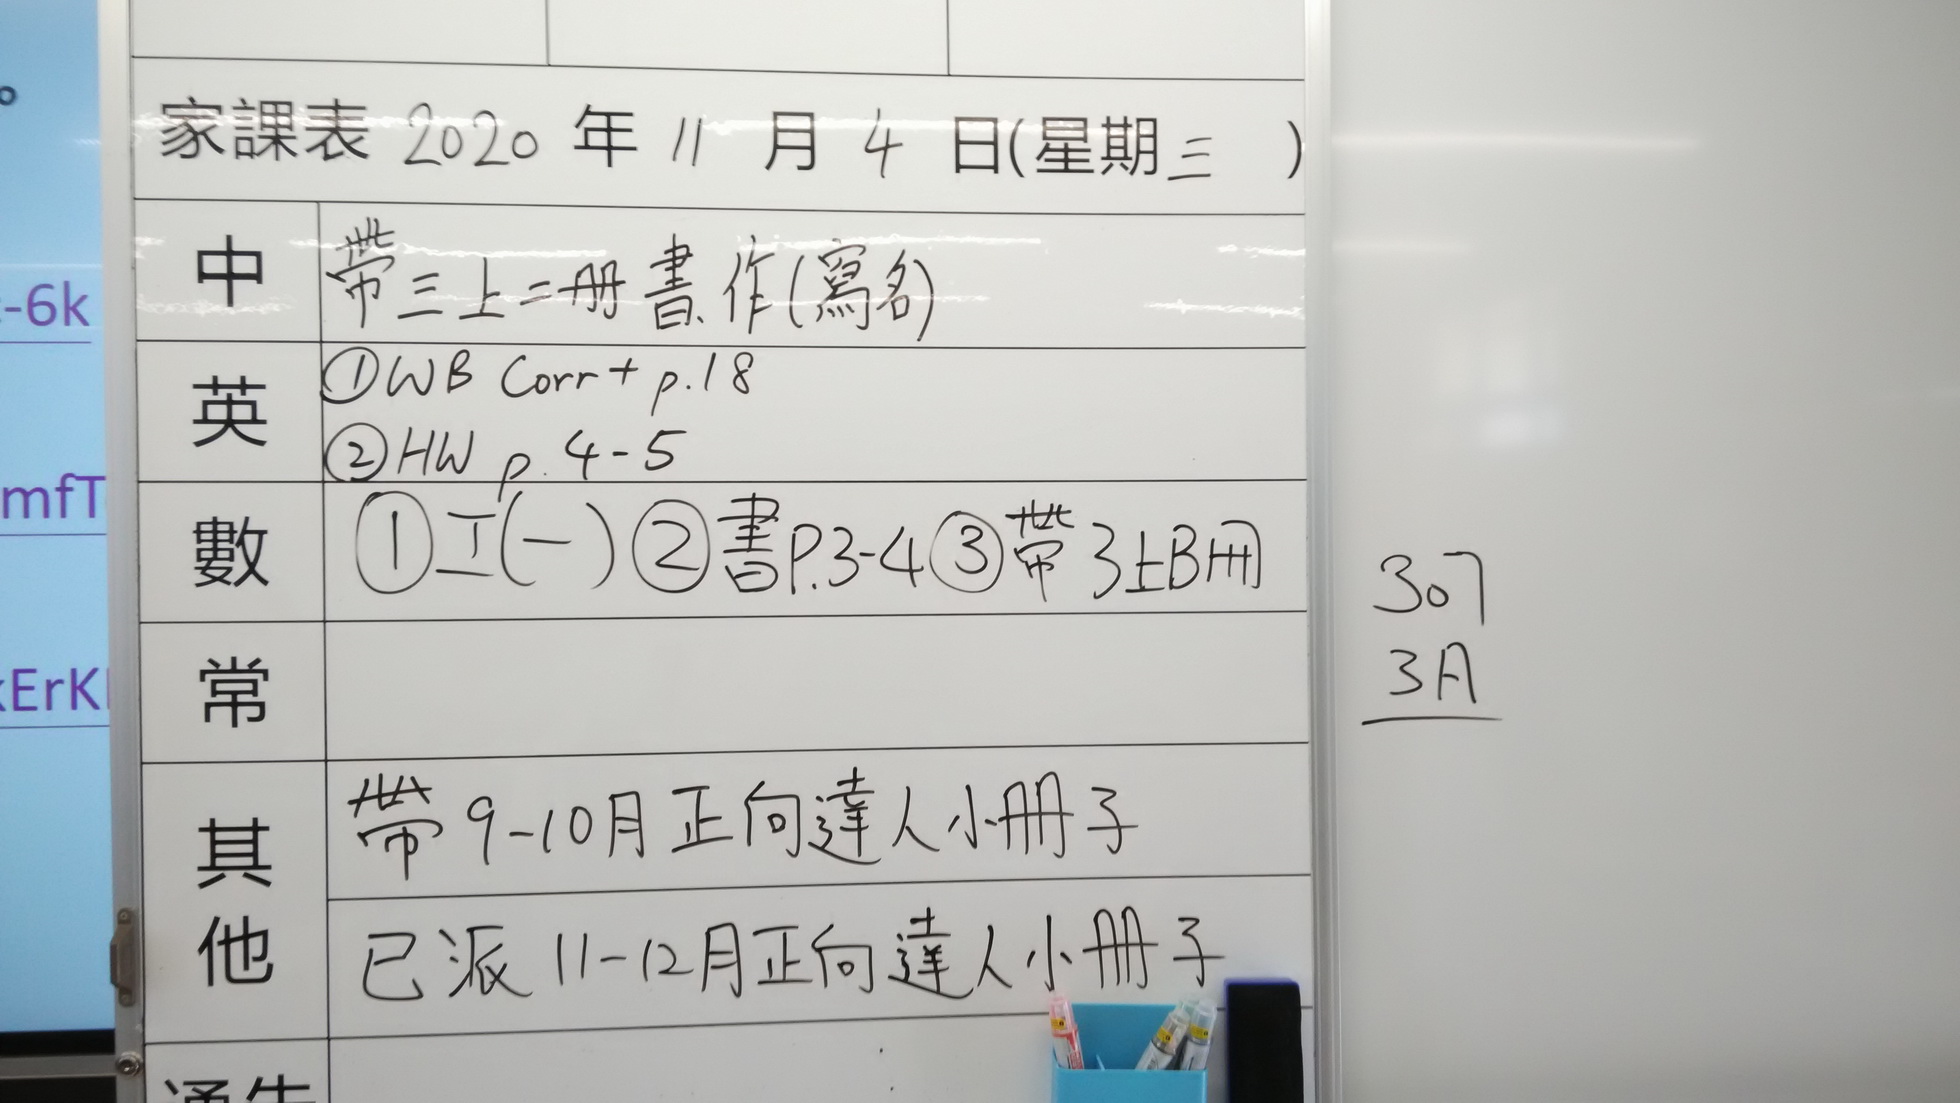 家課表 2020 年 11 月 4 日(星期三 )
中 帶三上二冊書、作(寫名)
英 ①WB Corr + p.18
②HW p. 4-5
數 ①工(一) ②書P.3-4 ③帶3上B冊
常
其他 帶 9-10月正向達人小冊子
已派 11-12月正向達人小冊子
通告
307
3A
-6k
mfT
ErK